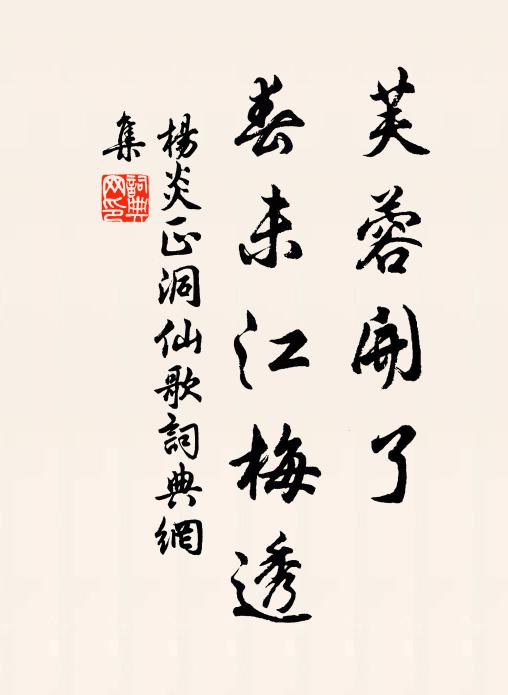 芙蓉開了
春未江梅透
楊炎正洞仙歌詞典網
集
詞典
网印